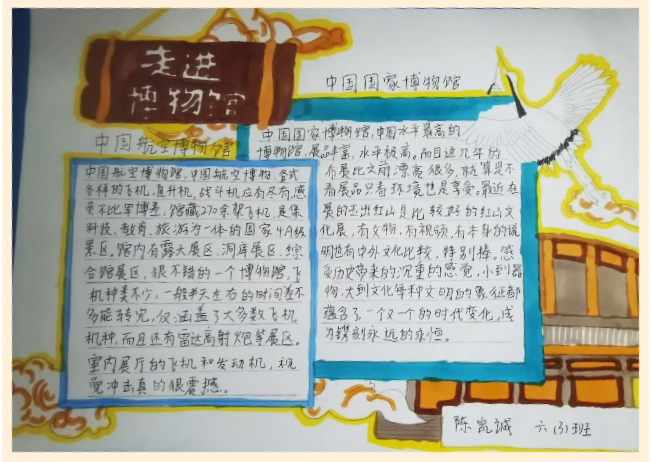 走进
博物馆
中国航空博物馆
中国航空博物馆,中国航空博物,各式
各样的飞机,直升机,战斗机应有尽有,感
觉不比军博差,馆藏270余架飞机,是集
科技、教育、旅游为一体的国家4A级
景区。馆内有露天展区、洞库展区、综
合馆展区,很不错的一个博物馆,飞
机种类不少,一般半天左右的时间差不
多能转完,仅涵盖了大多数飞机
机种,而且还有雷达高射炮等展区。
室内展厅的飞机和发动机,视
觉冲击真的很震撼。
中国国家博物馆
中国国家博物馆,中国水平最高的
博物馆,展品丰富,水平极高。而且这几年的
布展比之前漂亮很多,就算是不
看展品只看环境也是享受。最近在
展的杰出红山是比较好的红山文
化展,有文物,有视频,有本身的说
明也有中外文化比较,特别棒。感
受历史带来的沉重的感觉,小到器
物,大到文化每种文明的象征都
蕴含了一个又一个的时代变化,成
为镌刻永远的永恒。
陈凯诚 六(3)班